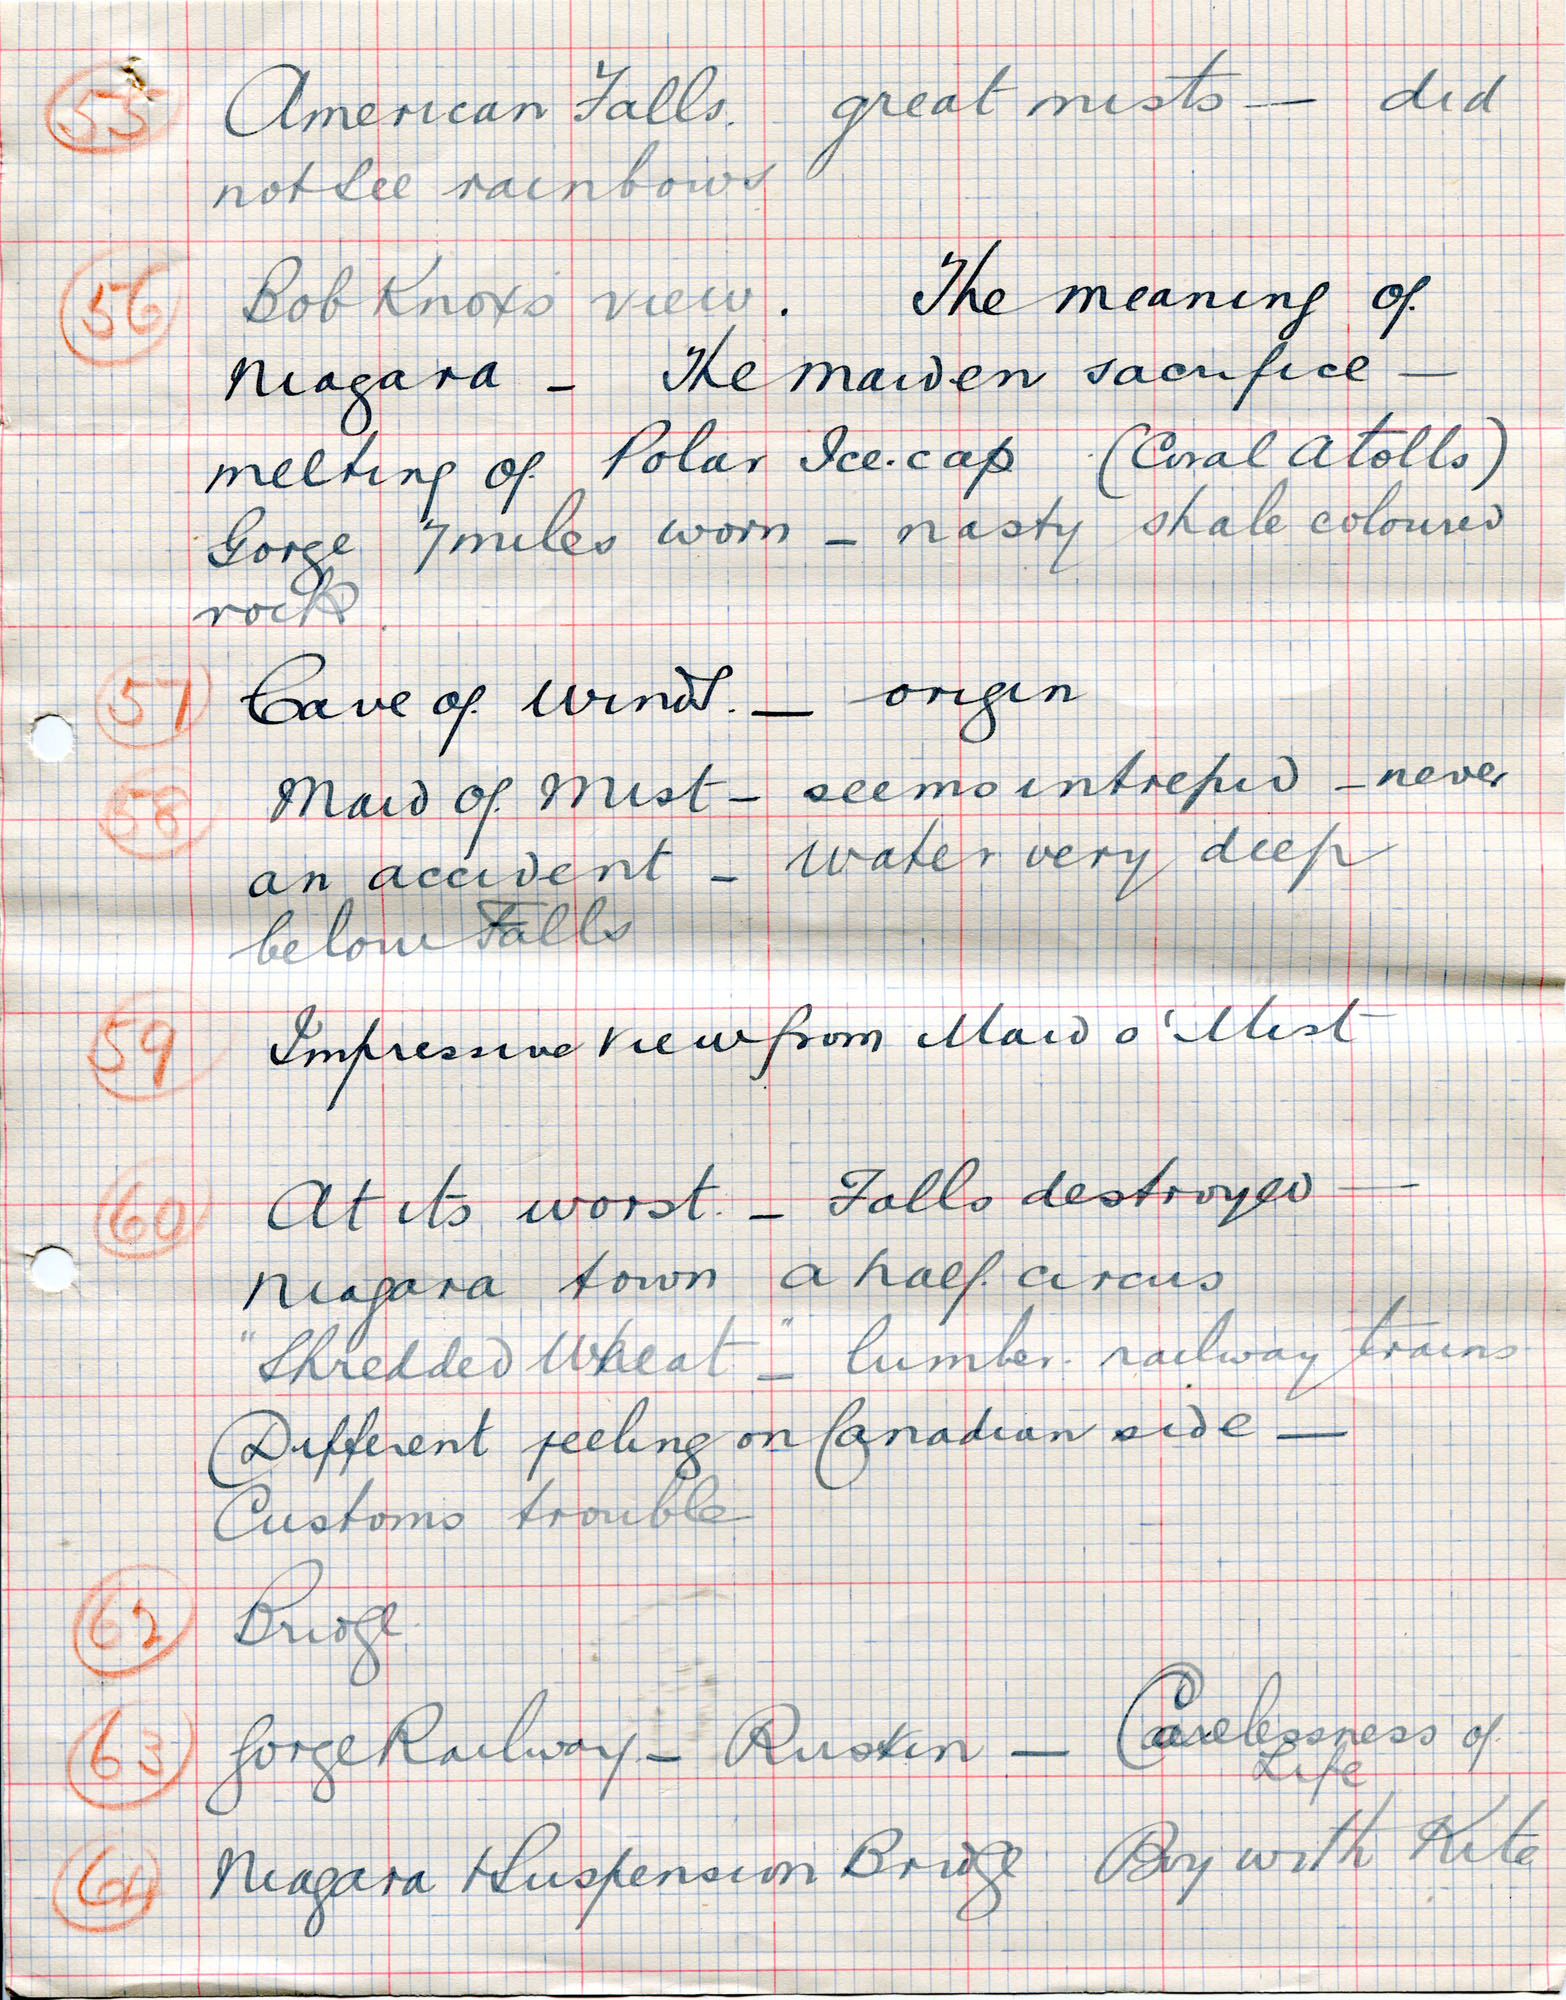 55 American Falls. great mists — did
not see rainbows
56 Bob Knox's view. The meaning of
Niagara – The maiden sacrifice —
melting of Polar Ice.cap (Coral Atolls)
Gorge 7 miles worn – nasty shale coloured
rock.
57 Cave of Winds. — origin
58 Maid of Mist – seems intrepid – never
an accident – water very deep
below Falls
59 Impressive view from Maid o' Mist
60 At its worst. – Falls destroyed —
Niagara town a half circus
"Shredded Wheat" – lumber. railway trains
Different feeling on Canadian side —
Customs trouble
62 Bridge.
63 Gorge Railway – Ruskin — Carelessness of
Life
64 Niagara Suspension Bridge Boy with Kite